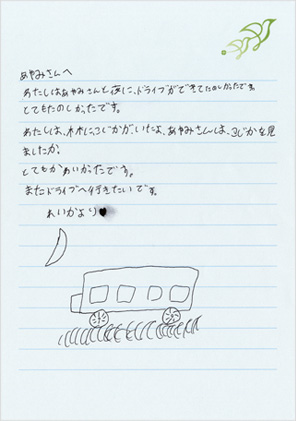 あやみさんへ
あたしはあやみさんと夜に、ドライブができてたのしかったです。
とてもたのしかったです。
あたしは、木に、こじかがいたよ、あやみさんは、こじかを見
ましたか。
とてもかわいかったです。
またドライブへ行きたいです。
れいかより